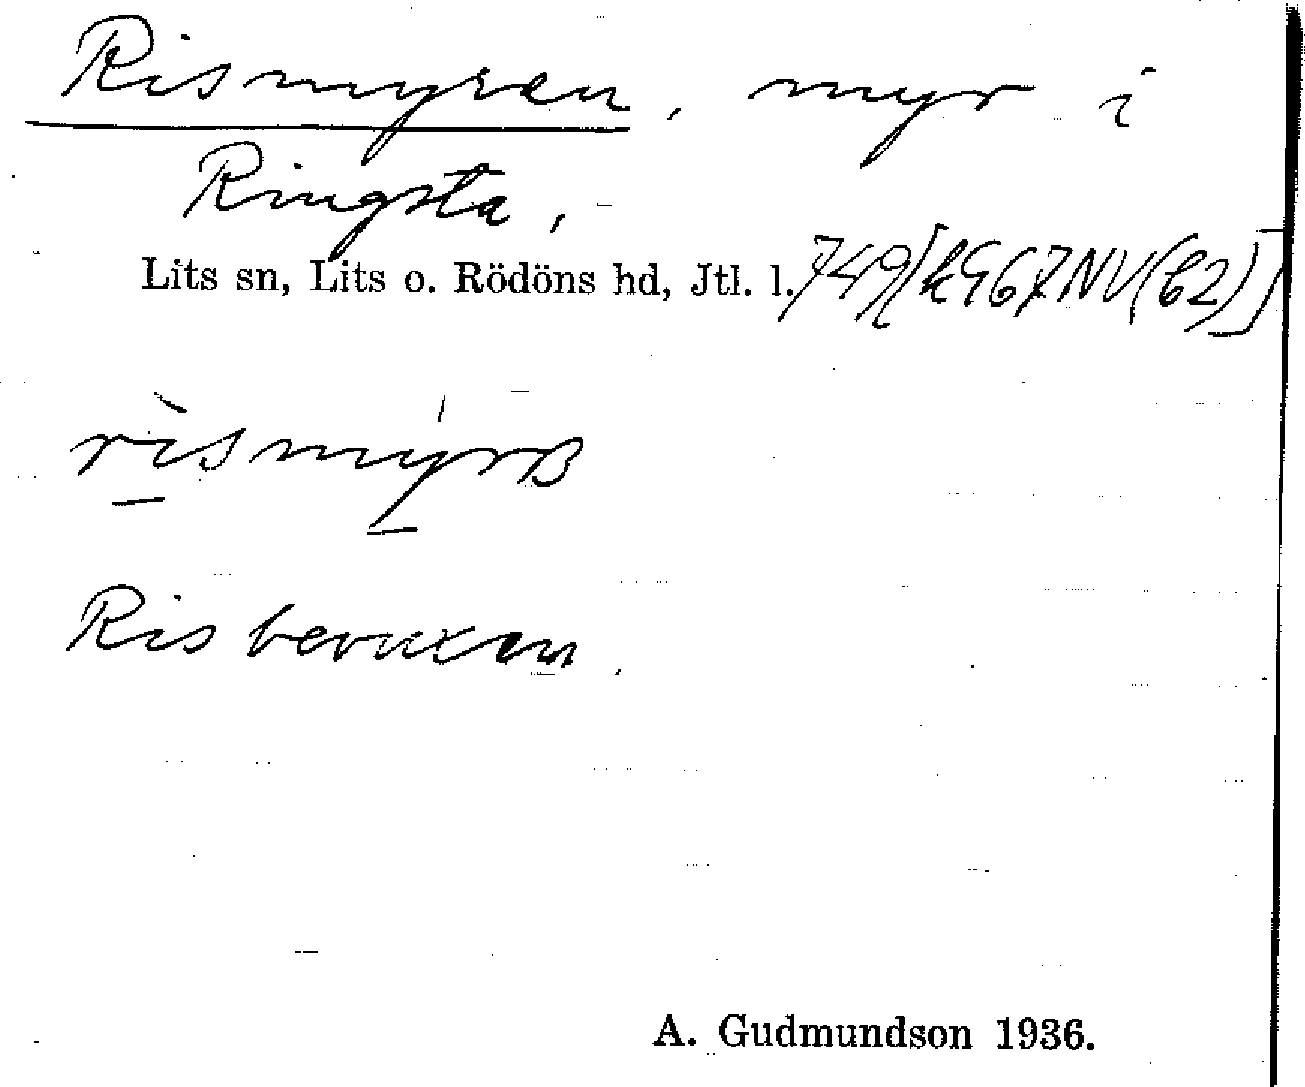 Rismyren, myr i
Ringsta,
Lits sn, Lits o. Rödöns hd, Jtl. l.
rìsmýrɞ
Risbevuxen.
A. Gudmundson 1936.